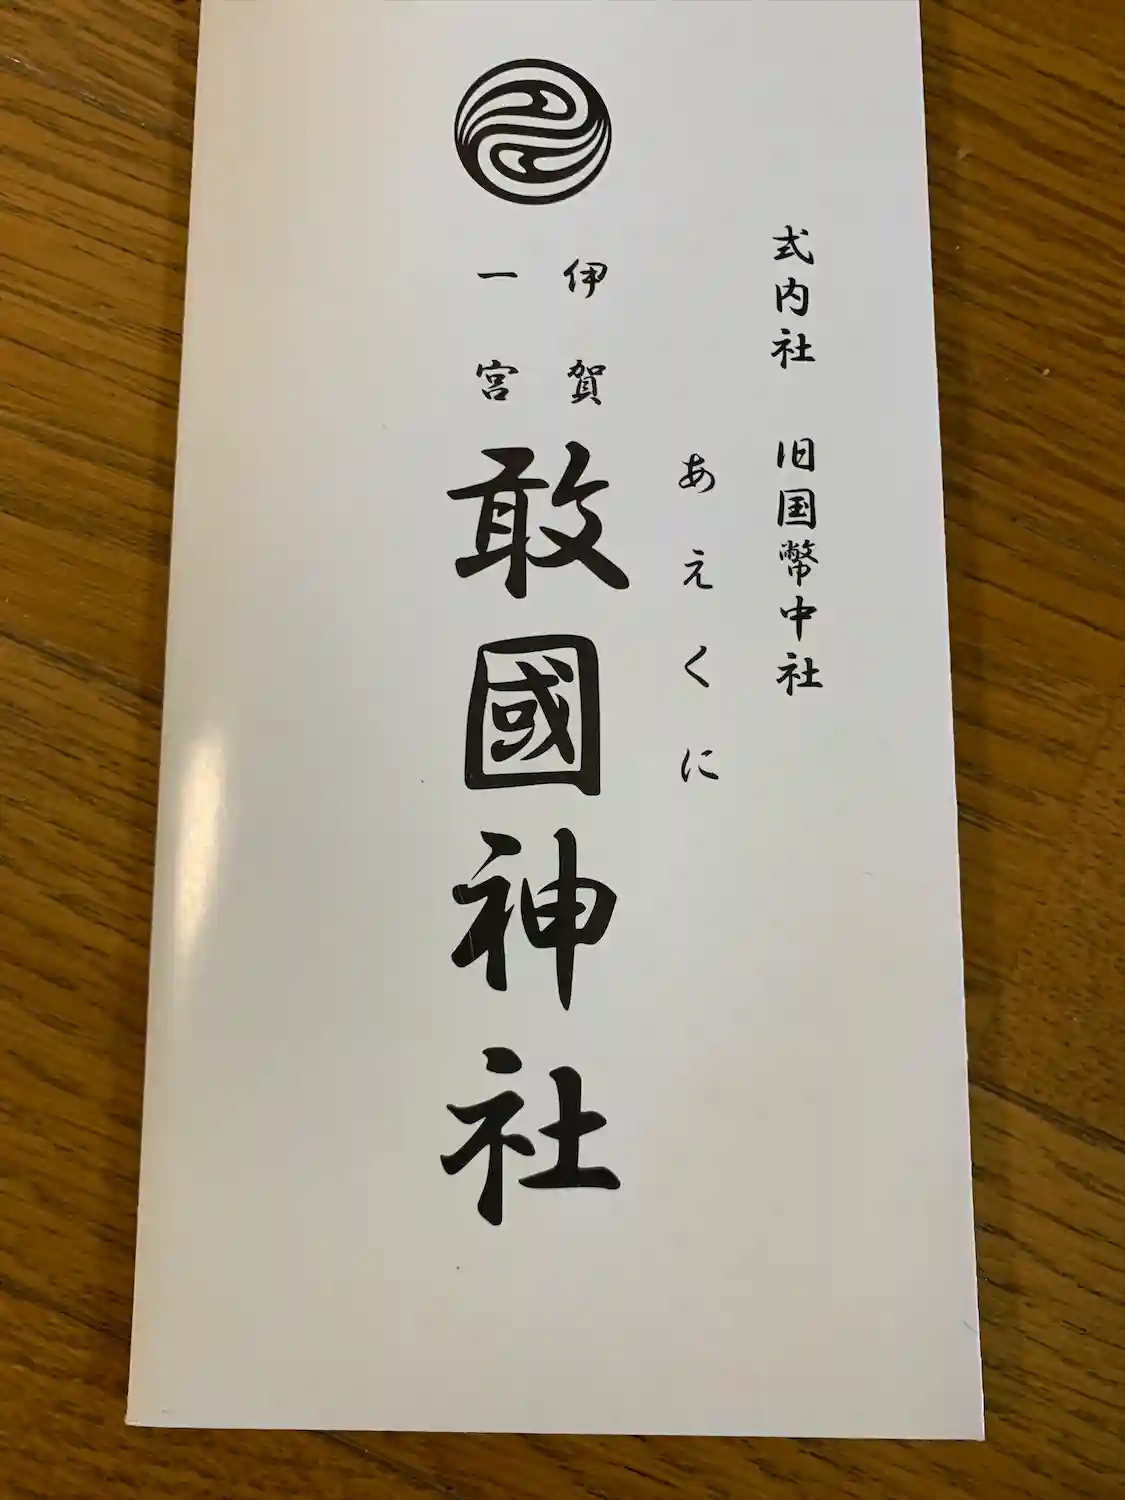 式内社　旧国幣中社
あえくに
伊賀
一宮
敢國神社